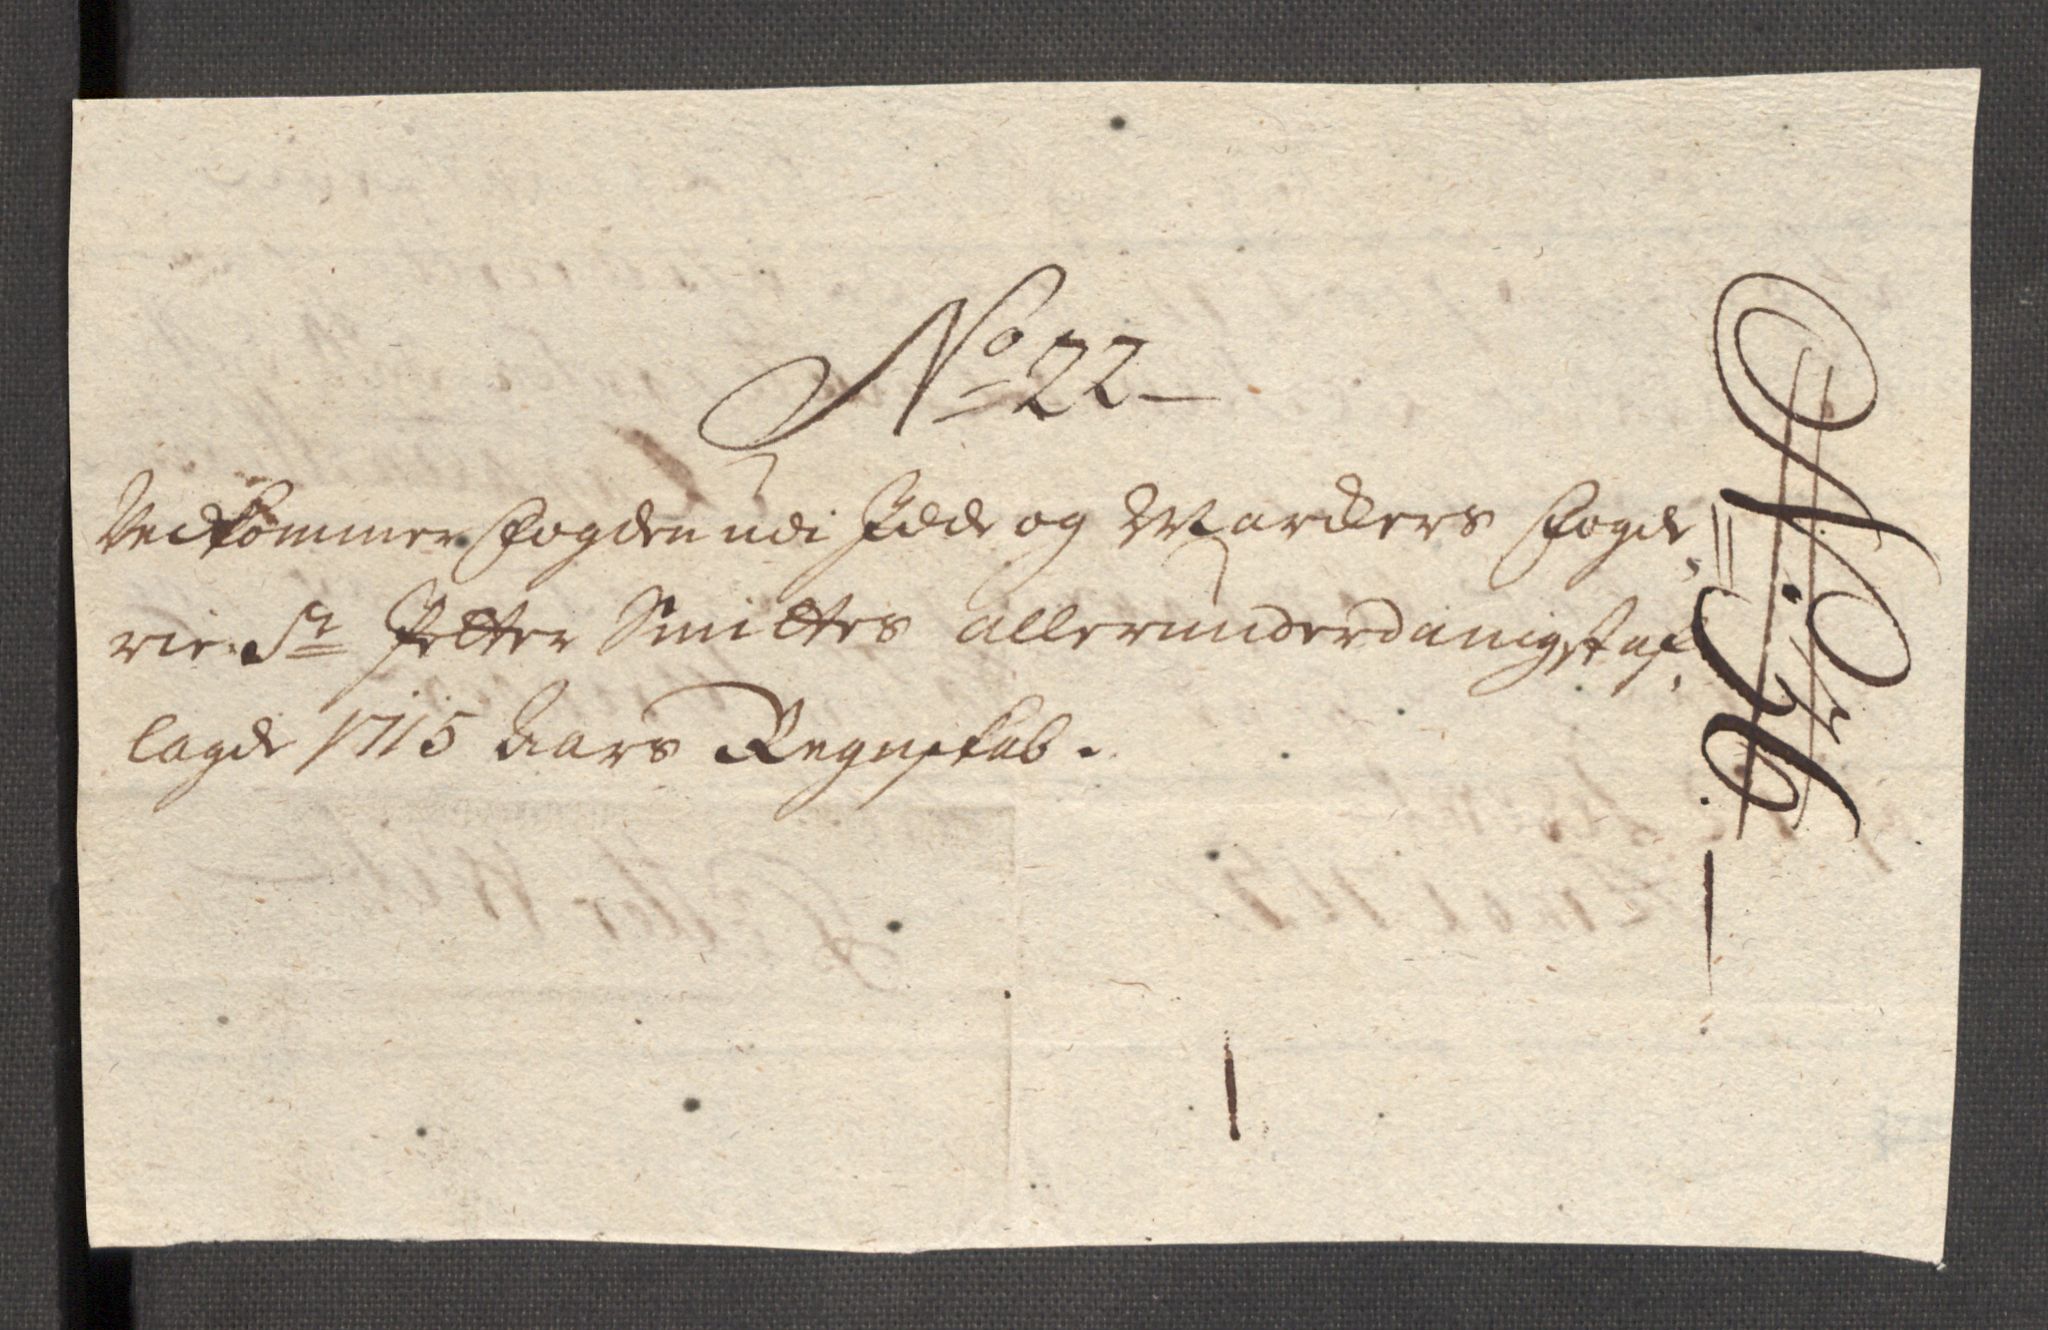 No 22
Vedkommer Fogden udi Idde og Markers Fogde,
rie. Sr Petter Smittes allerunderdanigst af,
lagde 1715 Aars Regnskab.